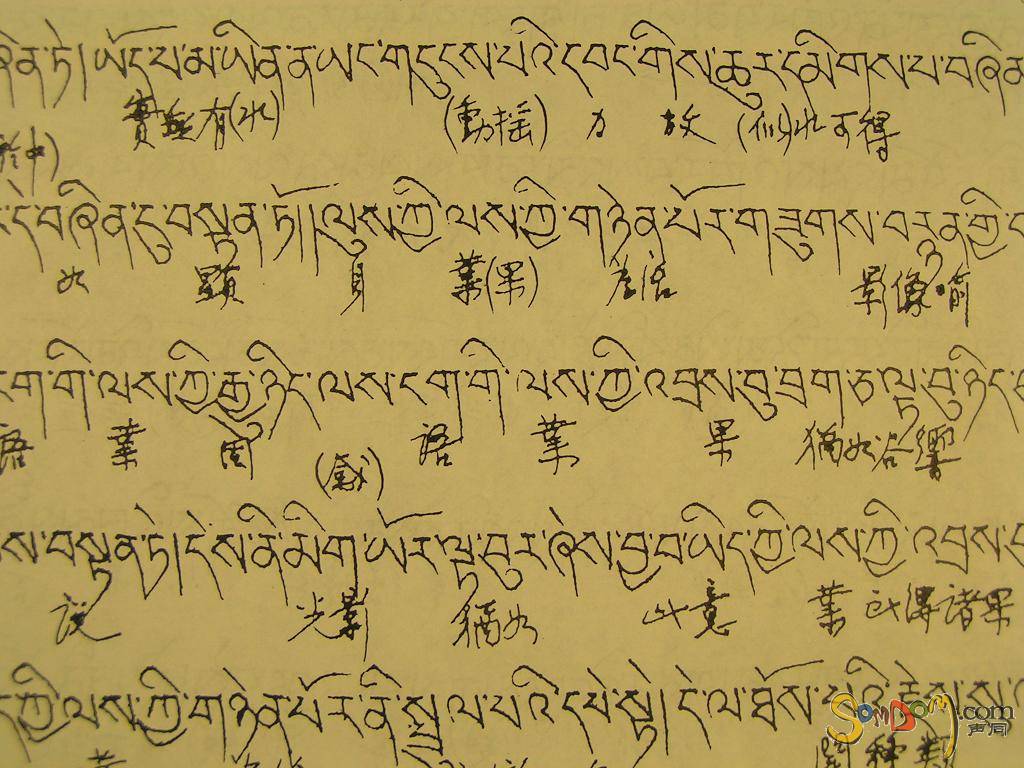 ཞིན་ཏེ། ཡོད་པ་མ་ཡིན་ན་ཡང་གདུངས་པའི་དབང་གིས་ཆུར་དམིགས་པ་བཞིན
實無有(水) (動搖) 力 故 (似)水可得
於中)
དེ་བཞིན་དུ་བསྟན་ཏོ།།ལུས་ཀྱི་ལས་ཀྱི་གཉེན་པོར་གཟུགས་བརྙན་གྱི
如 顯 身 業(果) 影像喻
ངག་གི་ལས་ཀྱི་རྒྱུ་ཉིད་ལས་ངག་གི་ལས་ཀྱི་འབྲས་བུ་བྲག་ཅ་ལྟ་བུ་ཉིད
語 業 因 語 業 果 猶如谷響
བསྟན་ཏེ། དེས་ནི་མིག་ཡོར་ལྟ་བུར་ཞེས་བྱ་བ་ཡིད་ཀྱི་ལས་ཀྱི་འབྲས
說 光影 猶如 此意 業 諸果
ཀྱི་ལས་ཀྱི་གཉེན་པོར་ནི་སྤྲུལ་པའི་དཔེ་སྟེ། དེ་ལ་ཐོས་པའི་རྗེས་སུ
SOMDOM.com
声同